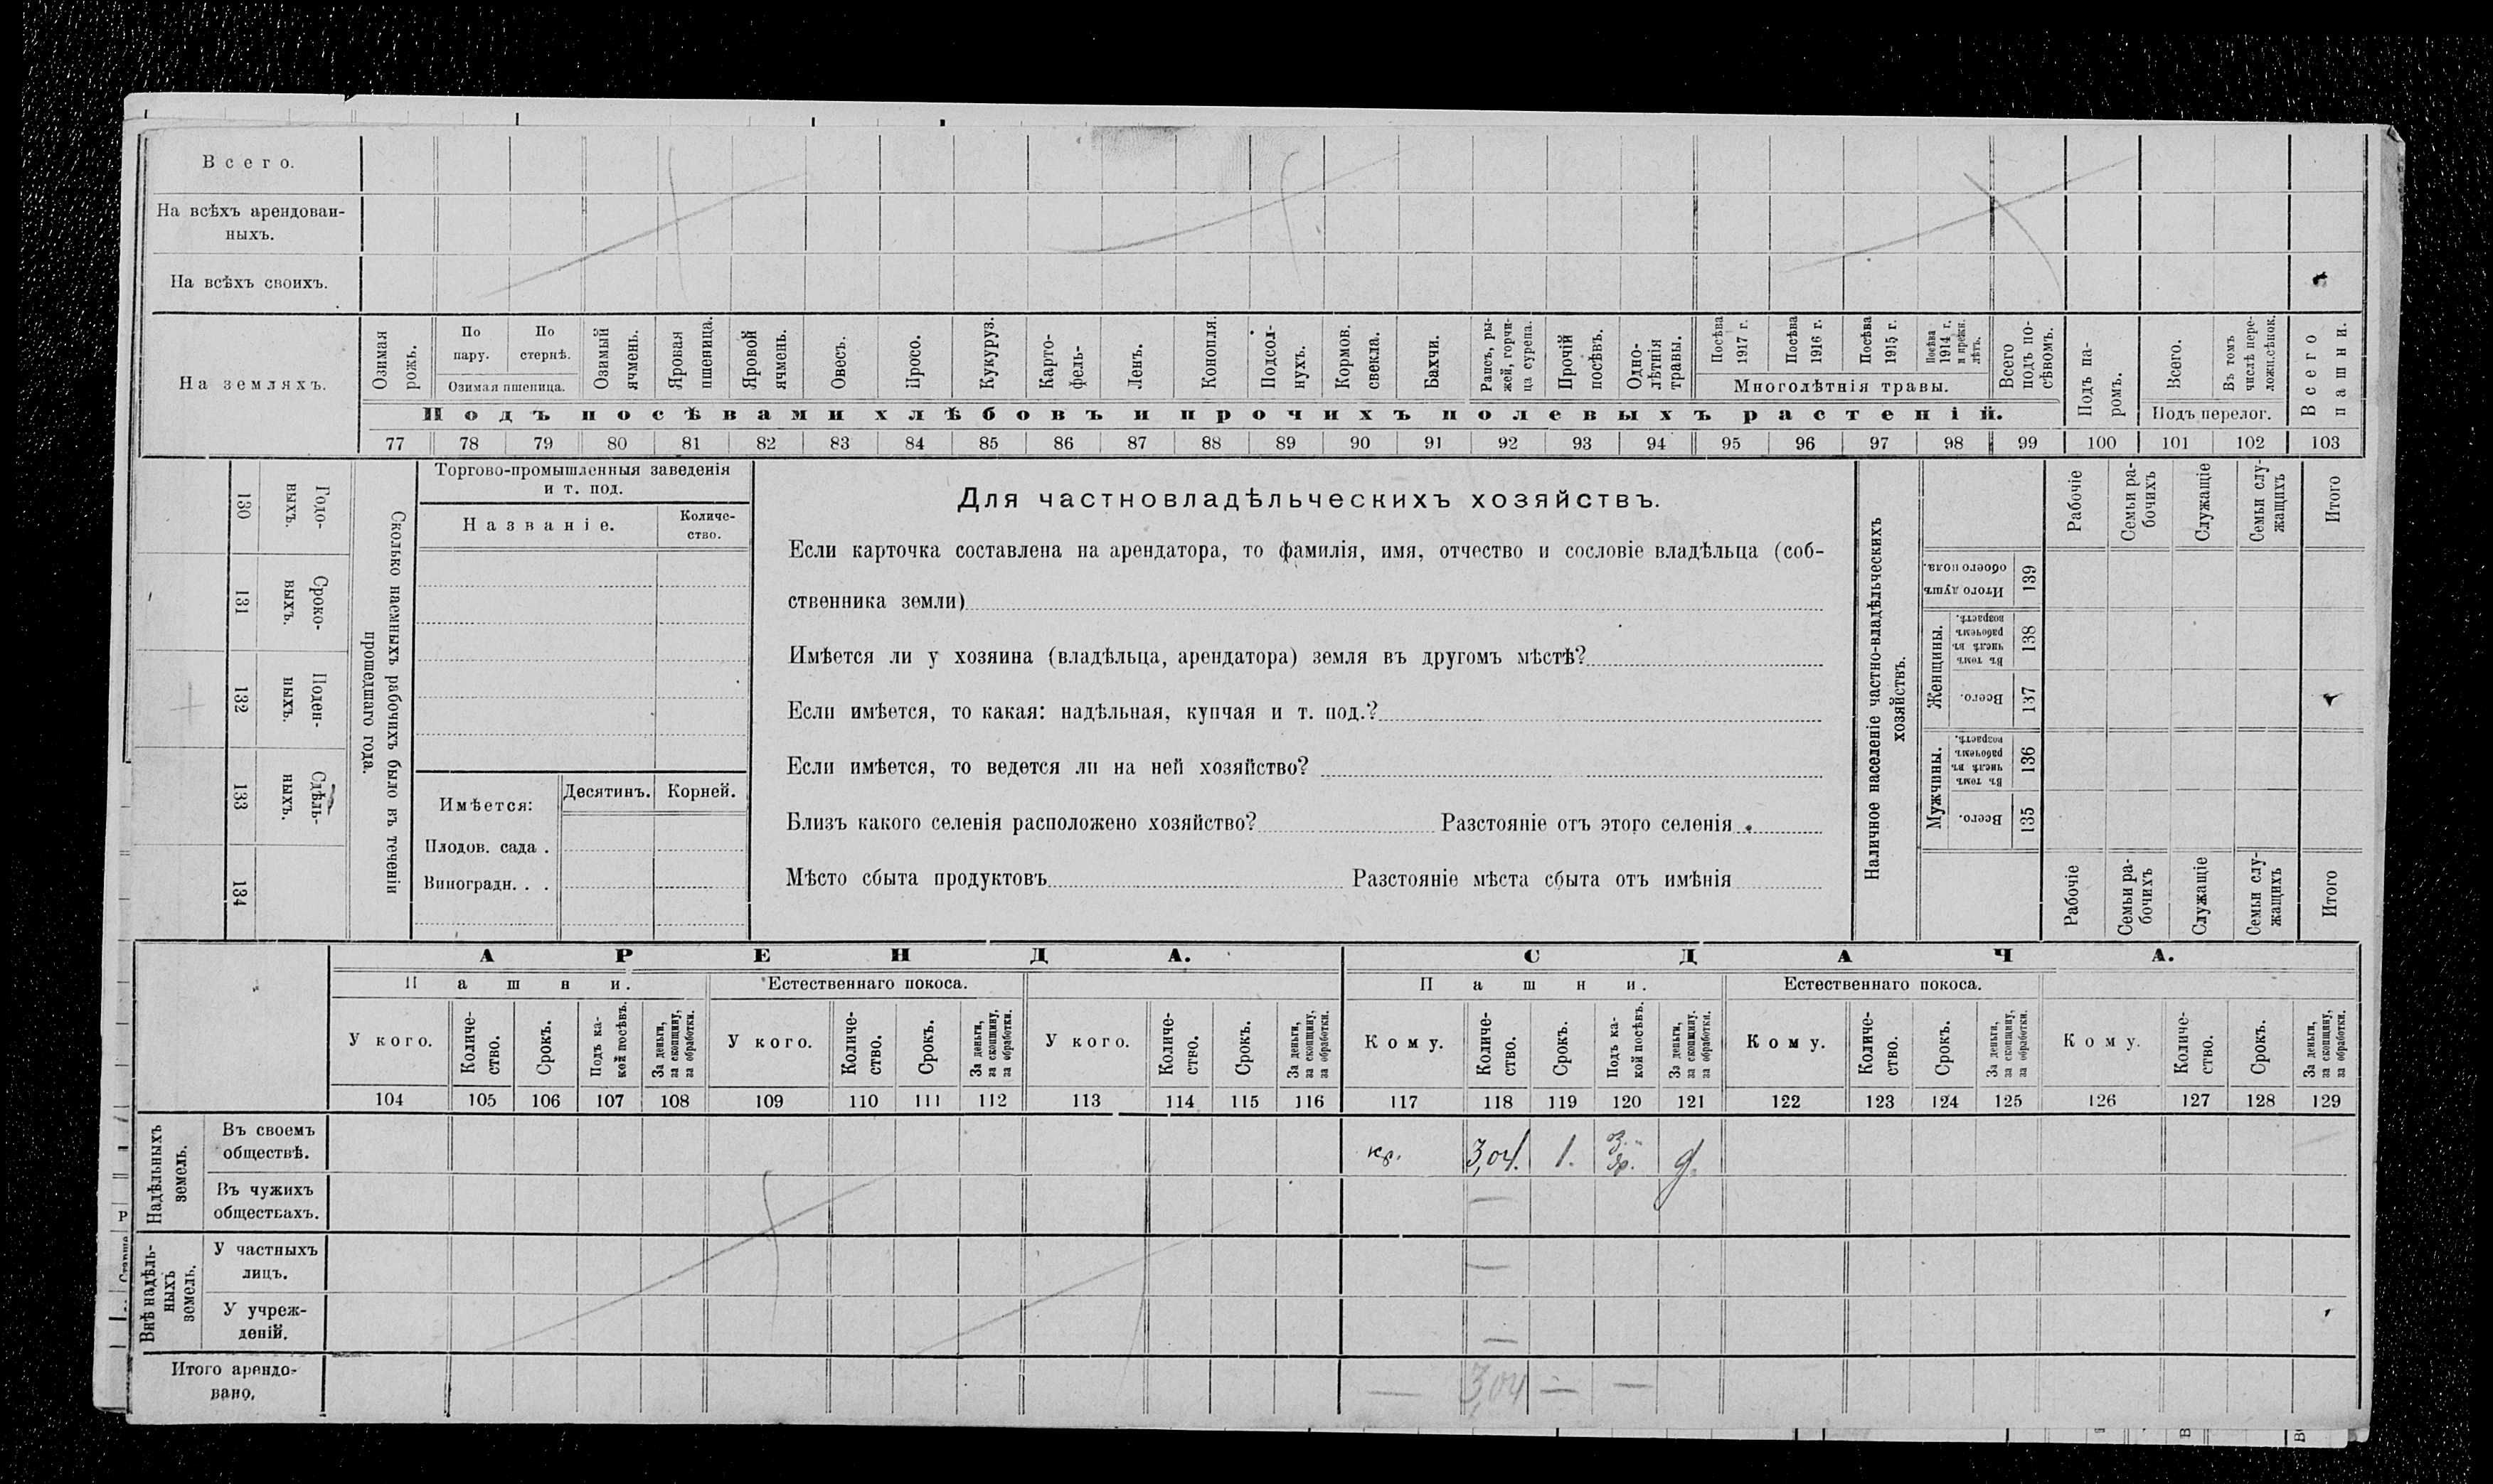 Всего.
На всѣхъ арендован-
ныхъ.
На всѣхъ своихъ.
На земляхъ.
Озимая рожь.
По пару.
По стернѣ.
Озимая пшеница.
Озимый ячмень.
Яровая пшеница.
Яровой ячмень.
Овесъ.
Просо.
Кукуруз.
Карто-
фель-
Ленъ.
Конопля.
Подсол-
нухъ.
Кормов. свекла.
Бахчи.
Рапсъ, ры-
жей, горчи-
ца сурепа.
Прочій посѣвъ.
Одно-
лѣтнія
травы.
Посѣва 1917 г.
Посѣва 1916 г.
Посѣва 1915 г.
Посѣва 1914 г. и прежн. лѣтъ.
Многолѣтнія травы.
Всего подъ по-
сѣвомъ.
Подъ па-
ромъ.
Всего.
Въ томъ числѣ пере-
ложн.сѣнок.
Подъ перелог.
Всего пашни.
Подъ посѣвами хлѣбовъ и прочихъ полевыхъ растеній.
77 78 79 80 81 82 83 84 85 86 87 88 89 90 91 92 93 94 95 96 97 98 99 100 101 102 103
130 Годо-
выхъ.
131 Сроко-
выхъ.
132 Поден-
ныхъ.
133 Сдѣль-
ныхъ.
134
Сколько наемныхъ рабочихъ было въ теченіи
прошедшаго года.
Торгово-промышленныя заведенія
и т. под.
Названіе.
Количе-
ство.
Имѣется:
Десятинъ.
Корней.
Плодов. сада .
Виноградн. . .
Для частновладѣльческихъ хозяйствъ.
Если карточка составлена на арендатора, то фамилія, имя, отчество и сословіе владѣльца (соб-
ственника земли)
Имѣется ли у хозяина (владѣльца, арендатора) земля въ другомъ мѣстѣ?
Если имѣется, то какая: надѣльная, купчая и т. под.?
Если имѣется, то ведется ли на ней хозяйство?
Близъ какого селенія расположено хозяйство? Разстояніе отъ этого селенія
Мѣсто сбыта продуктовъ Разстояніе мѣста сбыта отъ имѣнія
Наличное населеніе частно-владѣльческихъ
хозяйствъ.
Рабочіе
Семьи ра-
бочихъ
Служащіе
Семьи слу-
жащихъ
Итого
Итого душъ
обоего пола.
139
Женщины.
Въ томъ
числѣ въ
рабочемъ
возрастѣ.
138
Всего.
137
Мужчины.
Въ томъ
числѣ въ
рабочемъ
возрастѣ.
136
Всего.
135
Рабочіе
Семьи ра-
бочихъ
Служащіе
Семьи слу-
жащихъ
Итого
АРЕНДА.
СДАЧА.
Пашни.
Естественнаго покоса.
Пашни.
Естественнаго покоса.
У кого.
Количе-
ство.
Срокъ.
Подъ ка-
кой посѣвъ.
За деньги,
за скопщину,
за обработки.
У кого.
Количе-
ство.
Срокъ.
За деньги,
за скопщину,
за обработки.
У кого.
Количе-
ство.
Срокъ.
За деньги,
за скопщину,
за обработки.
Кому.
Количе-
ство.
Срокъ.
Подъ ка-
кой посѣвъ.
За деньги,
за скопщину,
за обработки.
Кому.
Количе-
ство.
Срокъ.
За деньги,
за скопщину,
за обработки.
Кому.
Количе-
ство.
Срокъ.
За деньги,
за скопщину,
за обработки.
104 105 106 107 108 109 110 111 112 113 114 115 116 117 118 119 120 121 122 123 124 125 126 127 128 129
Надѣльныхъ
земель.
Въ своемъ
обществѣ.
кр. 3,04. 1. оз. яр. д.
Въ чужихъ
обществахъ.
—
Внѣ надѣль-
ныхъ
земель.
У частныхъ
лицъ.
—
У учреж-
деній.
—
Итого арендо-
вано.
— 3,04 — —